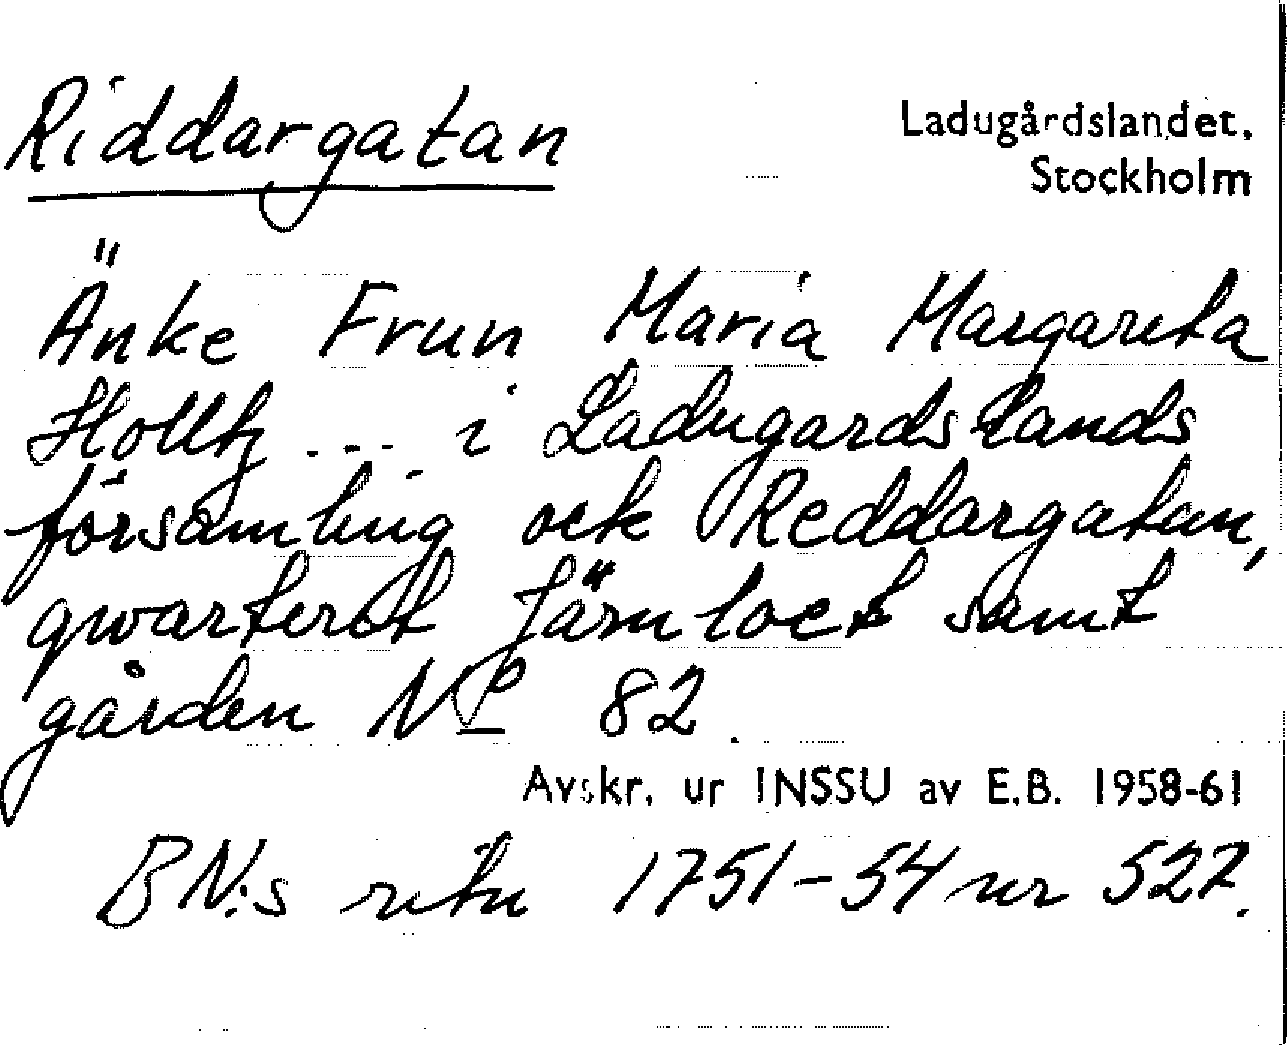 Riddargatan
Ladugårdslandet,
Stockholm
Änke Frun Maria Margareta
Holltz ... i Ladugardslands
församling ock Reddargatan,
qwarteret Järnloet samt
gården No 82.
Avskr. ur INSSU av E.B. 1958-61
BN:s ritn 1751-54 nr 527.